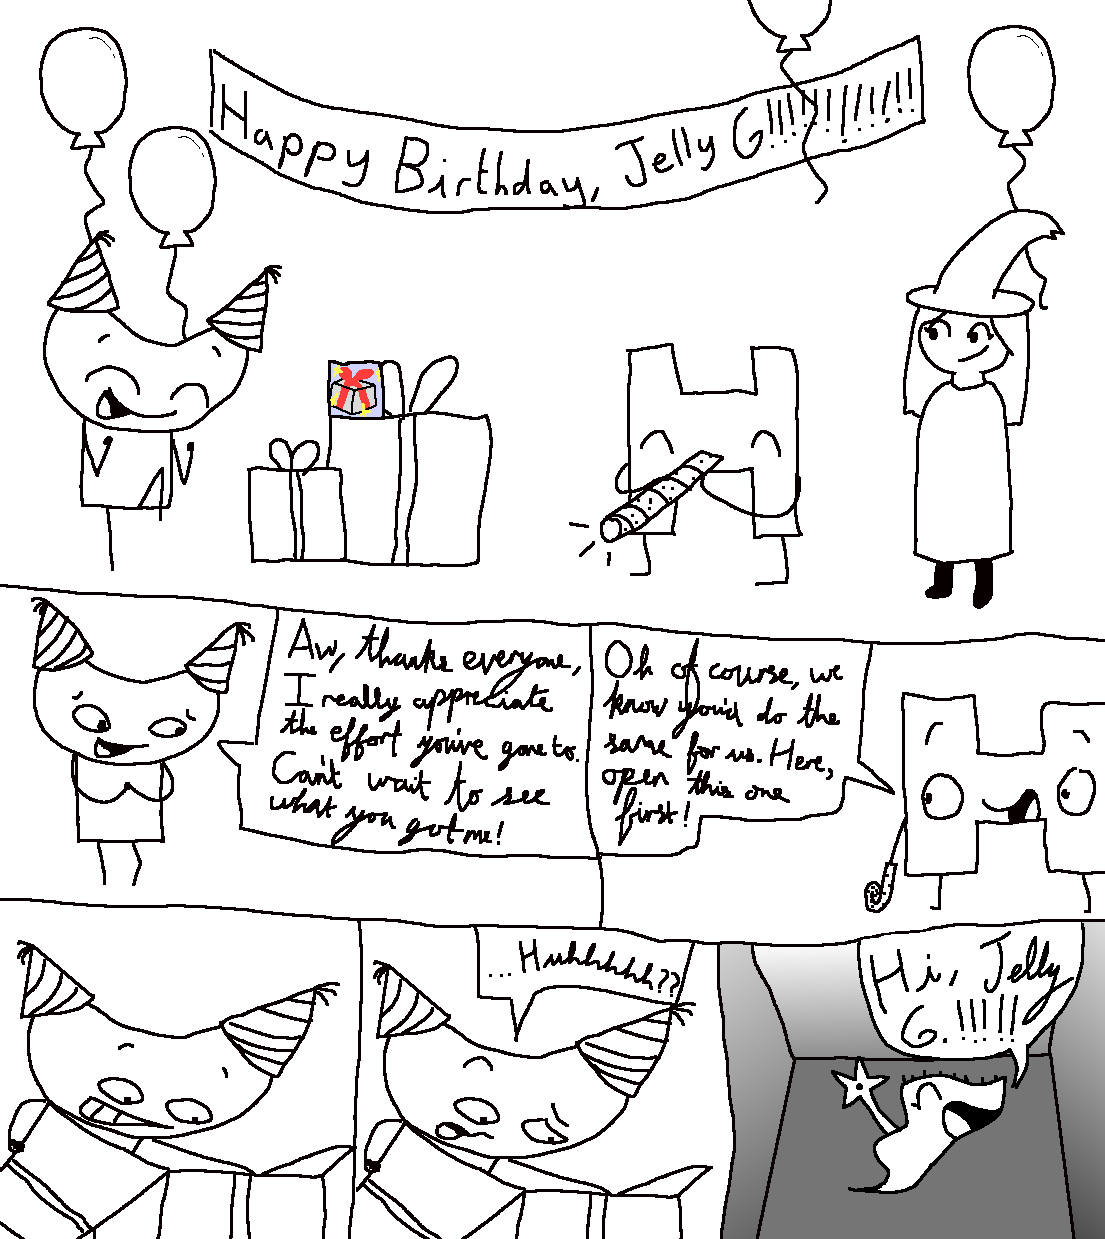 Happy Birthday, Jelly G!!!!!!!!!!!
Aw, thanks everyone,
I really appreciate
the effort you've gone to.
Can't wait to see
what you got me!
Oh of course, we
know you'd do the
same for us. Here,
open this one
first!
...Huhhhhh??
Hi, Jelly
G.!!!!!